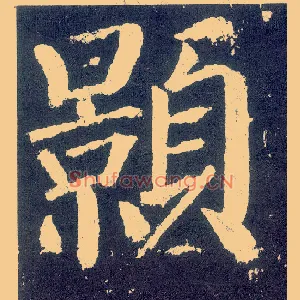 顥
Shufawang.CN